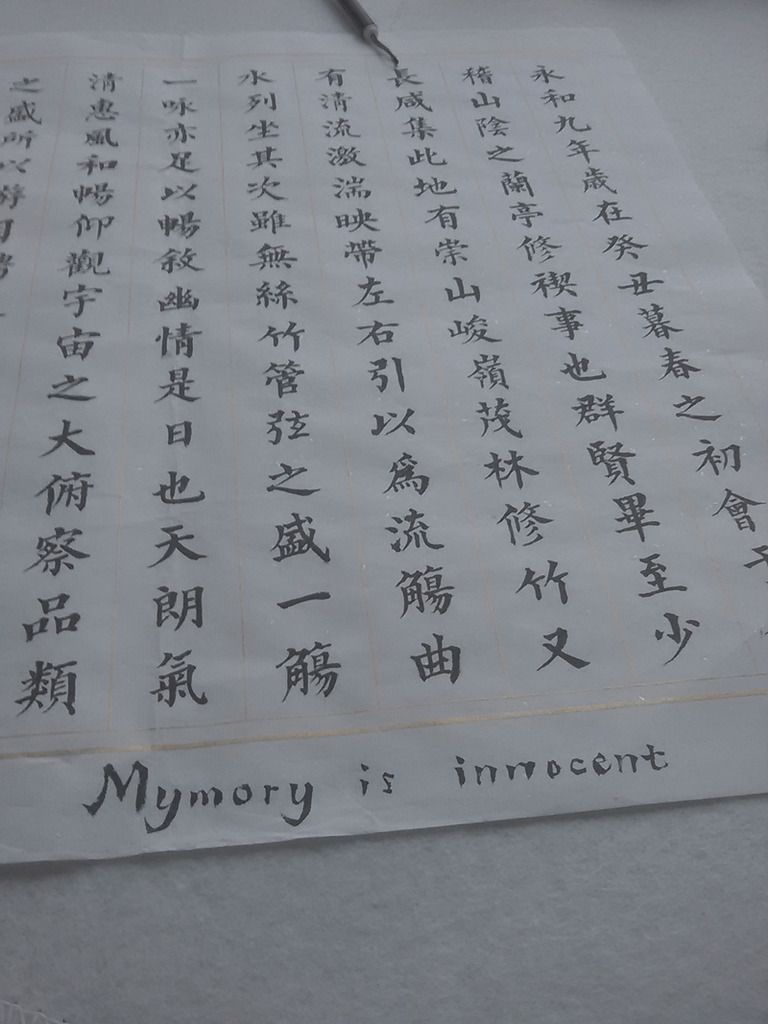 永和九年歲在癸丑暮春之初會于
稽山陰之蘭亭修禊事也群賢畢至少
長咸集此地有崇山峻嶺茂林修竹又
有清流激湍映帶左右引以爲流觴曲
水列坐其次雖無絲竹管弦之盛一觴
一咏亦足以暢敘幽情是日也天朗氣
清惠風和暢仰觀宇宙之大俯察品類
之盛所以游目騁
Mymory is innocent